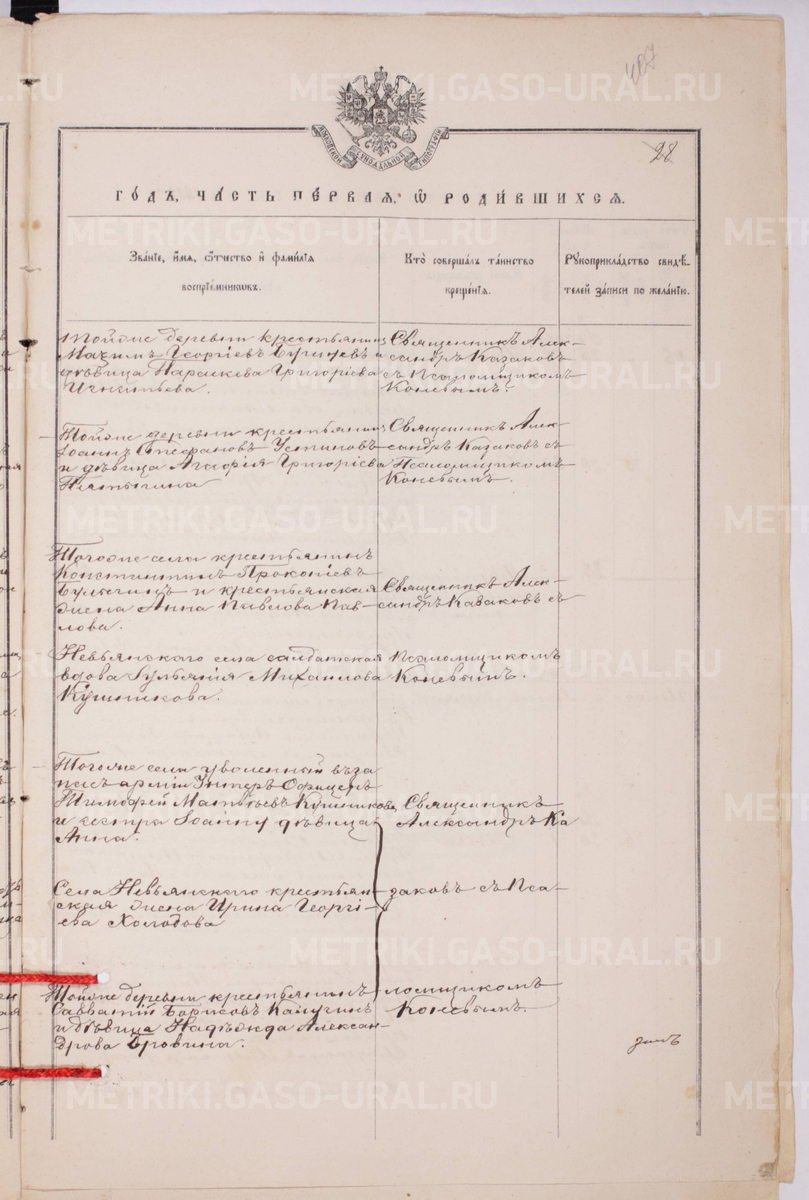 407
28
МОСКОВСКОЙ СѴНОДАЛЬНОЙ ТИПОГРАФІИ
ГОДЪ, ЧАСТЬ ПЕРВАЯ, Ѡ РОДИВШИХСЯ.
Званіе, имя, отчество и фамилія
воспріемниковъ.
Кто совершалъ таинство
крещенія.
Рукоприкладство свидѣ-
телей записи по желанію.
Тойже деревни крестьянинъ
Максимъ Георгіевъ и
дѣвица Параскева Григоріева
Игнатьева.
Священникъ Алек-
сандръ Казаковъ
съ Псаломщикомъ
Коневымъ.
Тойже деревни крестьянинъ
Іоаннъ Стефановъ Устиновъ
и дѣвица Агафія Григоріева
Пятыгина
Священникъ Алек-
сандръ Казаковъ съ
Псаломщикомъ
Коневымъ.
Тогоже села крестьянинъ
Константинъ Прокопіевъ
Булыгинъ и крестьянская
жена Анна Павлова Пав-
лова.
Священникъ Алек-
сандръ Казаковъ съ
Невьянскаго села солдатская
вдова Іульянія Михаилова
Кушникова.
Псаломщикомъ
Коневымъ.
Тогоже села уволенный въ за
пасъ арміи Унтеръ Офицеръ
Тимофей Матвѣевъ Кушниковъ
и сестра Іоанну дѣвица
Анна.
Священникъ
Александръ Ка
Села Невьянскаго крестьян-
ская жена Ирина Георгі-
ева Холодова
заковъ съ Пса-
Тойже деревни крестьянинъ
Савватій Борисовъ Калугинъ
и дѣвица Надѣжда Алексан-
дрова Бровина.
ломщикомъ
Коневымъ.
METRIKI.GASO-URAL.RU